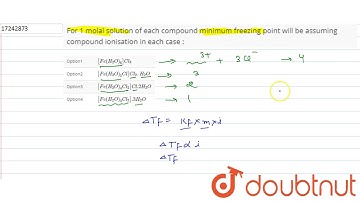 17242873
For 1 molal solution of each compound minimum freezing point will be assuming
compound ionisation in each case :
Option1 [Fe(H₂O)₆]Cl₃ → 3+ + 3Cl⁻ → 4
Option2 [Fe(H₂O)₅Cl]Cl₂.H₂O → 3
Option3 [Fe(H₂O)₄Cl₂]Cl.2H₂O → 2
Option4 [Fe(H₂O)₃Cl₃].3H₂O → 1
ΔTf = Kf × m × i
ΔTf α i
ΔTf
doubtnut